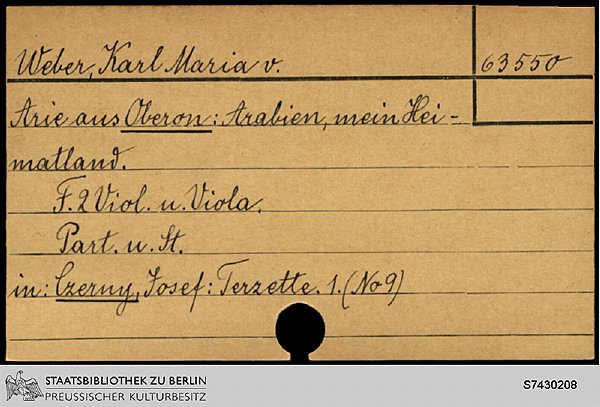 Weber, Karl Maria v.
63550
Arie aus Oberon: Arabien, mein Hei-
matland.
F. 2 Viol. u. Viola.
Part. u. St.
in: Czerny, Josef: Terzette. 1. (No 9)
STAATSBIBLIOTHEK ZU BERLIN
PREUSSISCHER KULTURBESITZ
S7430208